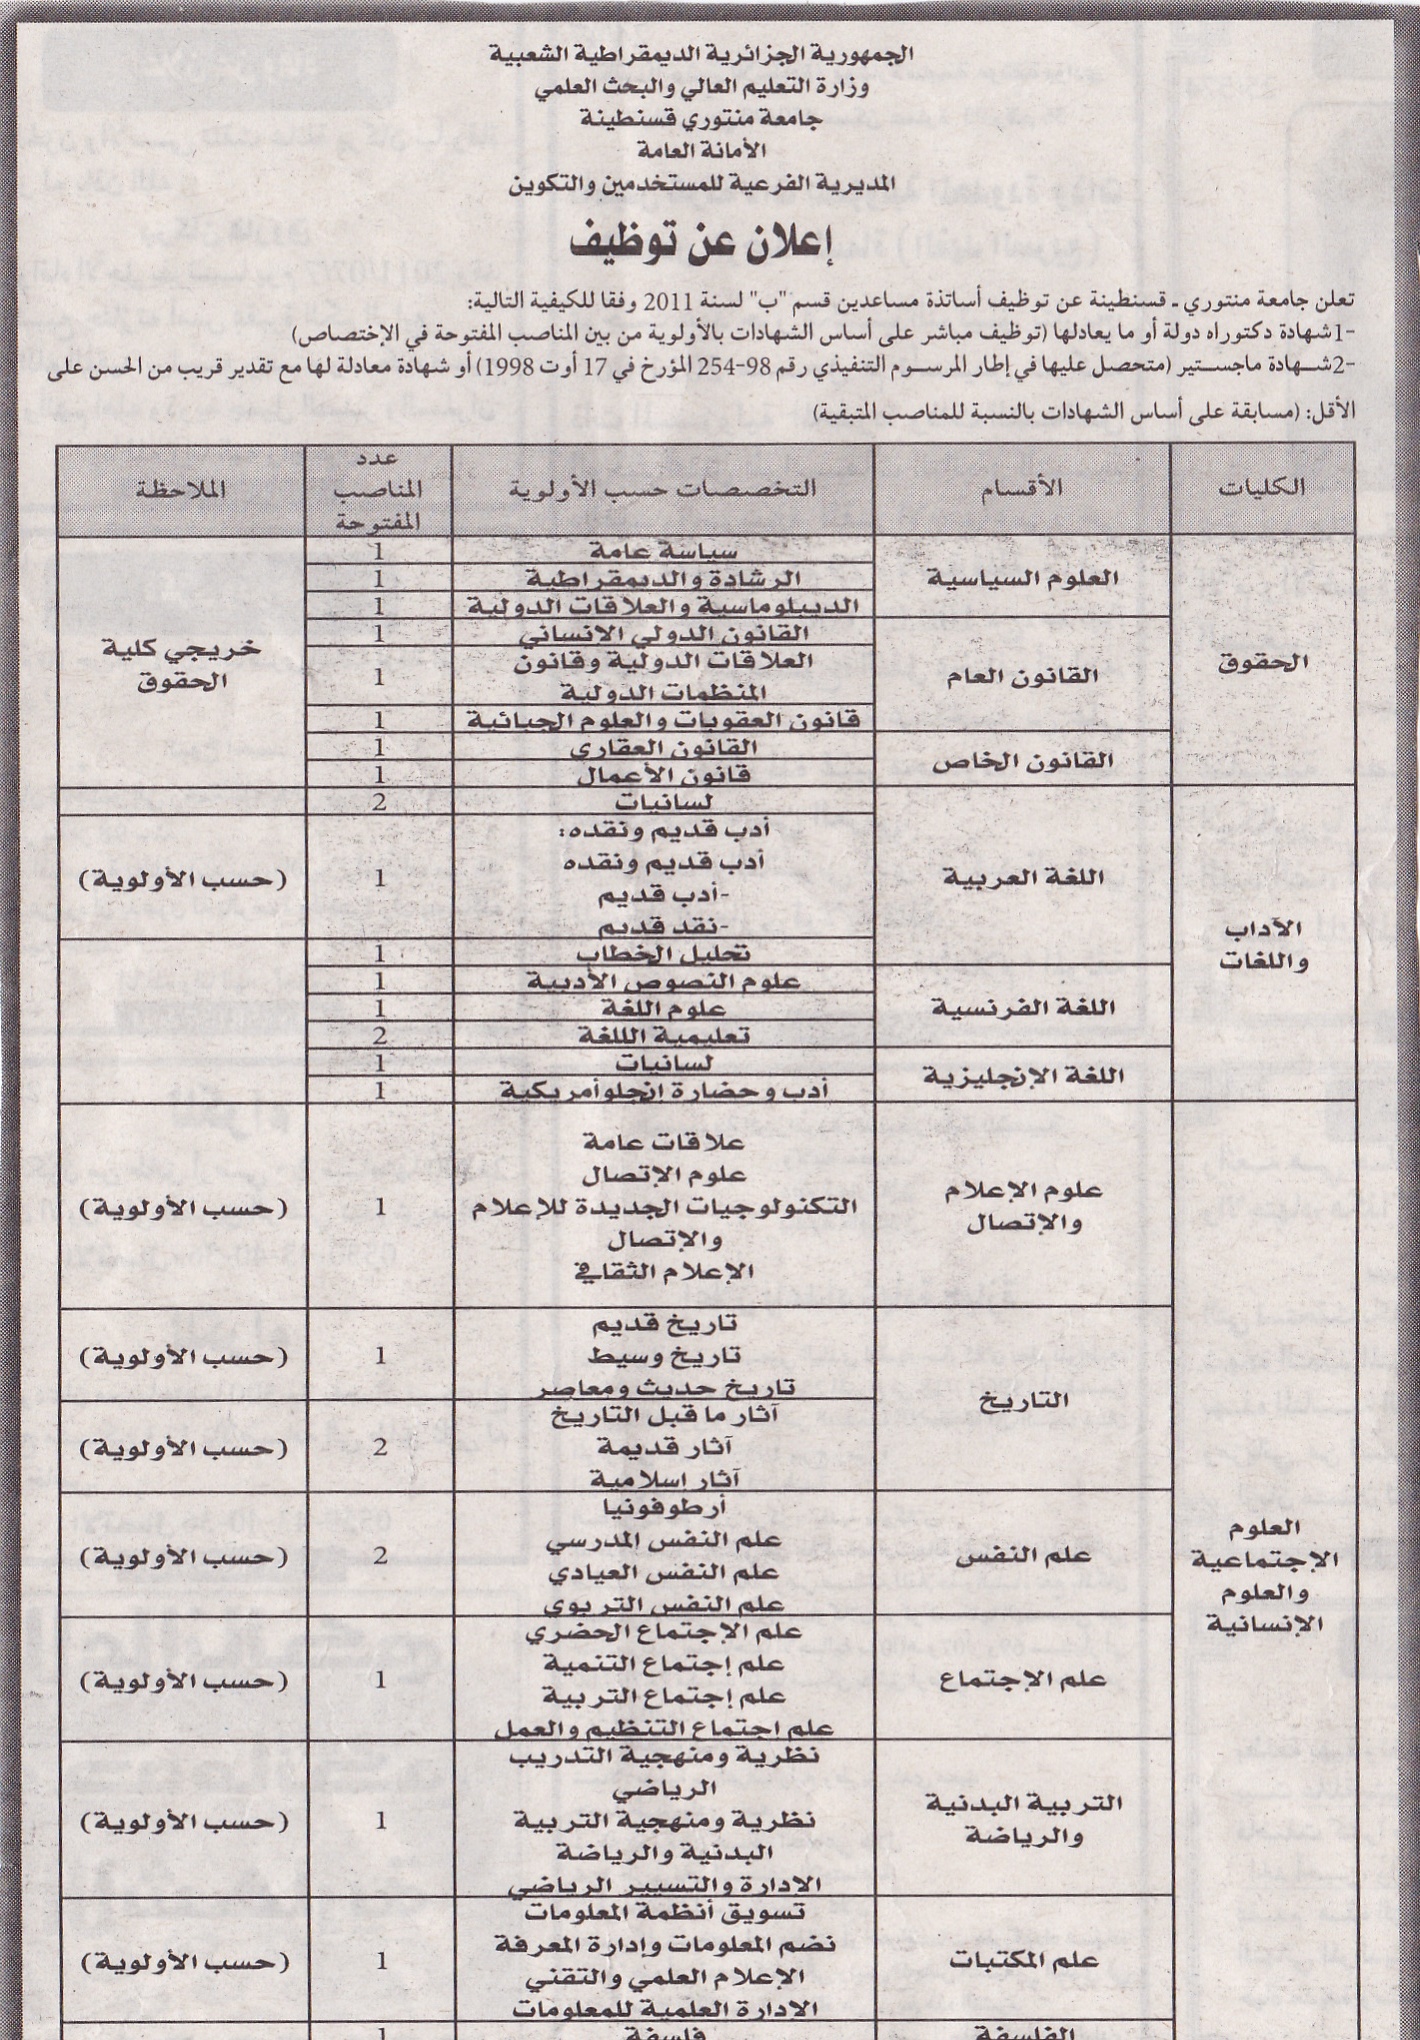 الجمهورية الجزائرية الديمقراطية الشعبية
وزارة التعليم العالي والبحث العلمي
جامعة منتوري قسنطينة
الأمانة العامة
المديرية الفرعية للمستخدمين والتكوين
إعلان عن توظيف
تعلن جامعة منتوري - قسنطينة عن توظيف أساتذة مساعدين قسم "ب" لسنة 2011 وفقا للكيفية التالية:
1- شهادة دكتوراه دولة أو ما يعادلها (توظيف مباشر على أساس الشهادات بالأولوية من بين المناصب المفتوحة في الإختصاص)
2- شهادة ماجستير (متحصل عليها في إطار المرسوم التنفيذي رقم 98-254 المؤرخ في 17 أوت 1998) أو شهادة معادلة لها مع تقدير قريب من الحسن على
الأقل: (مسابقة على أساس الشهادات بالنسبة للمناصب المتبقية)
الكليات الأقسام التخصصات حسب الأولوية عدد المناصب المفتوحة الملاحظة
الحقوق
العلوم السياسية
سياسة عامة 1
الرشادة والديمقراطية 1
الديبلوماسية والعلاقات الدولية 1
القانون العام
القانون الدولي الانساني 1
العلاقات الدولية وقانون
المنظمات الدولية
1
قانون العقوبات والعلوم الجبائية 1
القانون الخاص
القانون العقاري 1
قانون الأعمال 1
خريجي كلية
الحقوق
الآداب
واللغات
اللغة العربية
لسانيات 2
أدب قديم ونقده:
أدب قديم ونقده
-أدب قديم
-نقد قديم
1 (حسب الأولوية)
تحليل الخطاب 1
اللغة الفرنسية
علوم النصوص الأدبية 1
علوم اللغة 1
تعليمية الللغة 2
اللغة الإنجليزية
لسانيات 1
أدب وحضارة انجلوأمريكية 1
العلوم
الإجتماعية
والعلوم
الإنسانية
علوم الإعلام
والإتصال
علاقات عامة
علوم الإتصال
التكنولوجيات الجديدة للإعلام
والإتصال
الإعلام الثقافي
1 (حسب الأولوية)
التاريخ
تاريخ قديم
تاريخ وسيط
تاريخ حديث ومعاصر
1 (حسب الأولوية)
آثار ما قبل التاريخ
آثار قديمة
آثار اسلامية
2 (حسب الأولوية)
علم النفس
أرطوفونيا
علم النفس المدرسي
علم النفس العيادي
علم النفس التربوي
2 (حسب الأولوية)
علم الإجتماع
علم الإجتماع الحضري
علم إجتماع التنمية
علم إجتماع التربية
علم اجتماع التنظيم والعمل
1 (حسب الأولوية)
التربية البدنية
والرياضة
نظرية ومنهجية التدريب
الرياضي
نظرية ومنهجية التربية
البدنية والرياضة
الادارة والتسيير الرياضي
1 (حسب الأولوية)
علم المكتبات
تسويق أنظمة المعلومات
نضم المعلومات وإدارة المعرفة
الإعلام العلمي والتقني
الادارة العلمية للمعلومات
1 (حسب الأولوية)
الفلسفة فلسفة 1